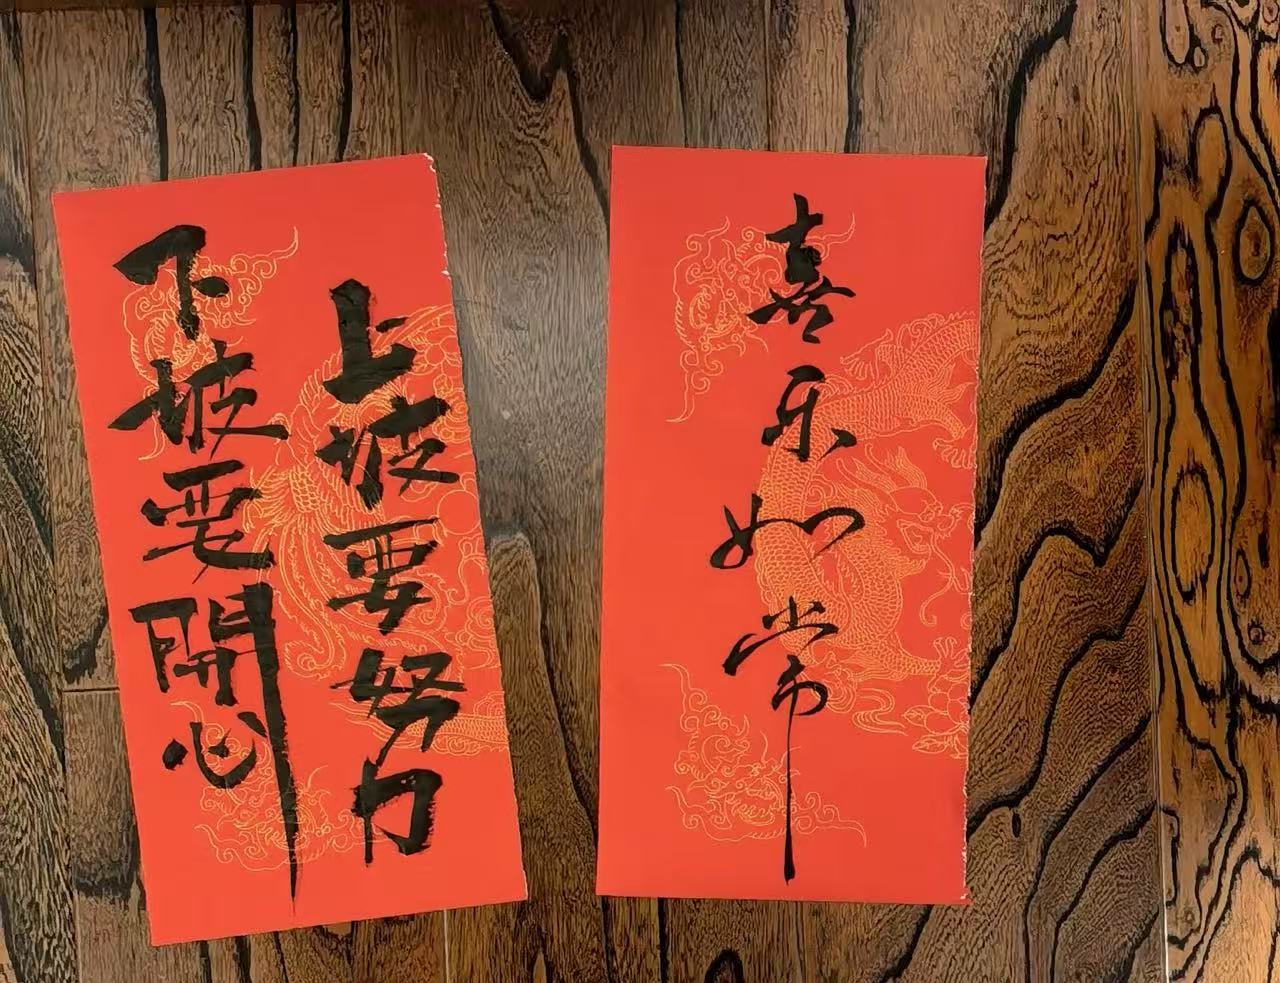 上坡要努力
下坡要開心
喜乐如常